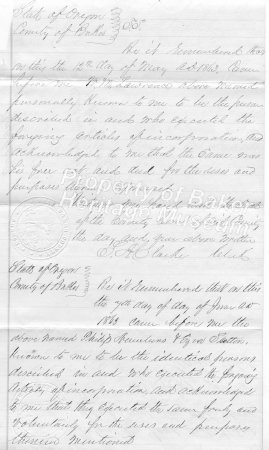 State of Oregon
County of Baker } SS
Be it Remembered that
on this the 12th day of May A.D. 1863, Came
before me
personally known to me to be the person
described in and who executed the
foregoing articles of incorporation, and
acknowledged to me that the same was
his free act and for the uses and
purposes
Property of Baker
Heritage Museum
of the County
the day and year above written
Clarke Clerk
State of Oregon
County of Baker } Be it Remembered that on this
the 7th day of day of June A.D.
1863 came before me the
above named Philip &
known to me to be the identical persons
described in and who executed the foregoing
Articles of incorporation and acknowledged
to me that they executed the same freely and
voluntarily for the uses and purposes
therein mentioned